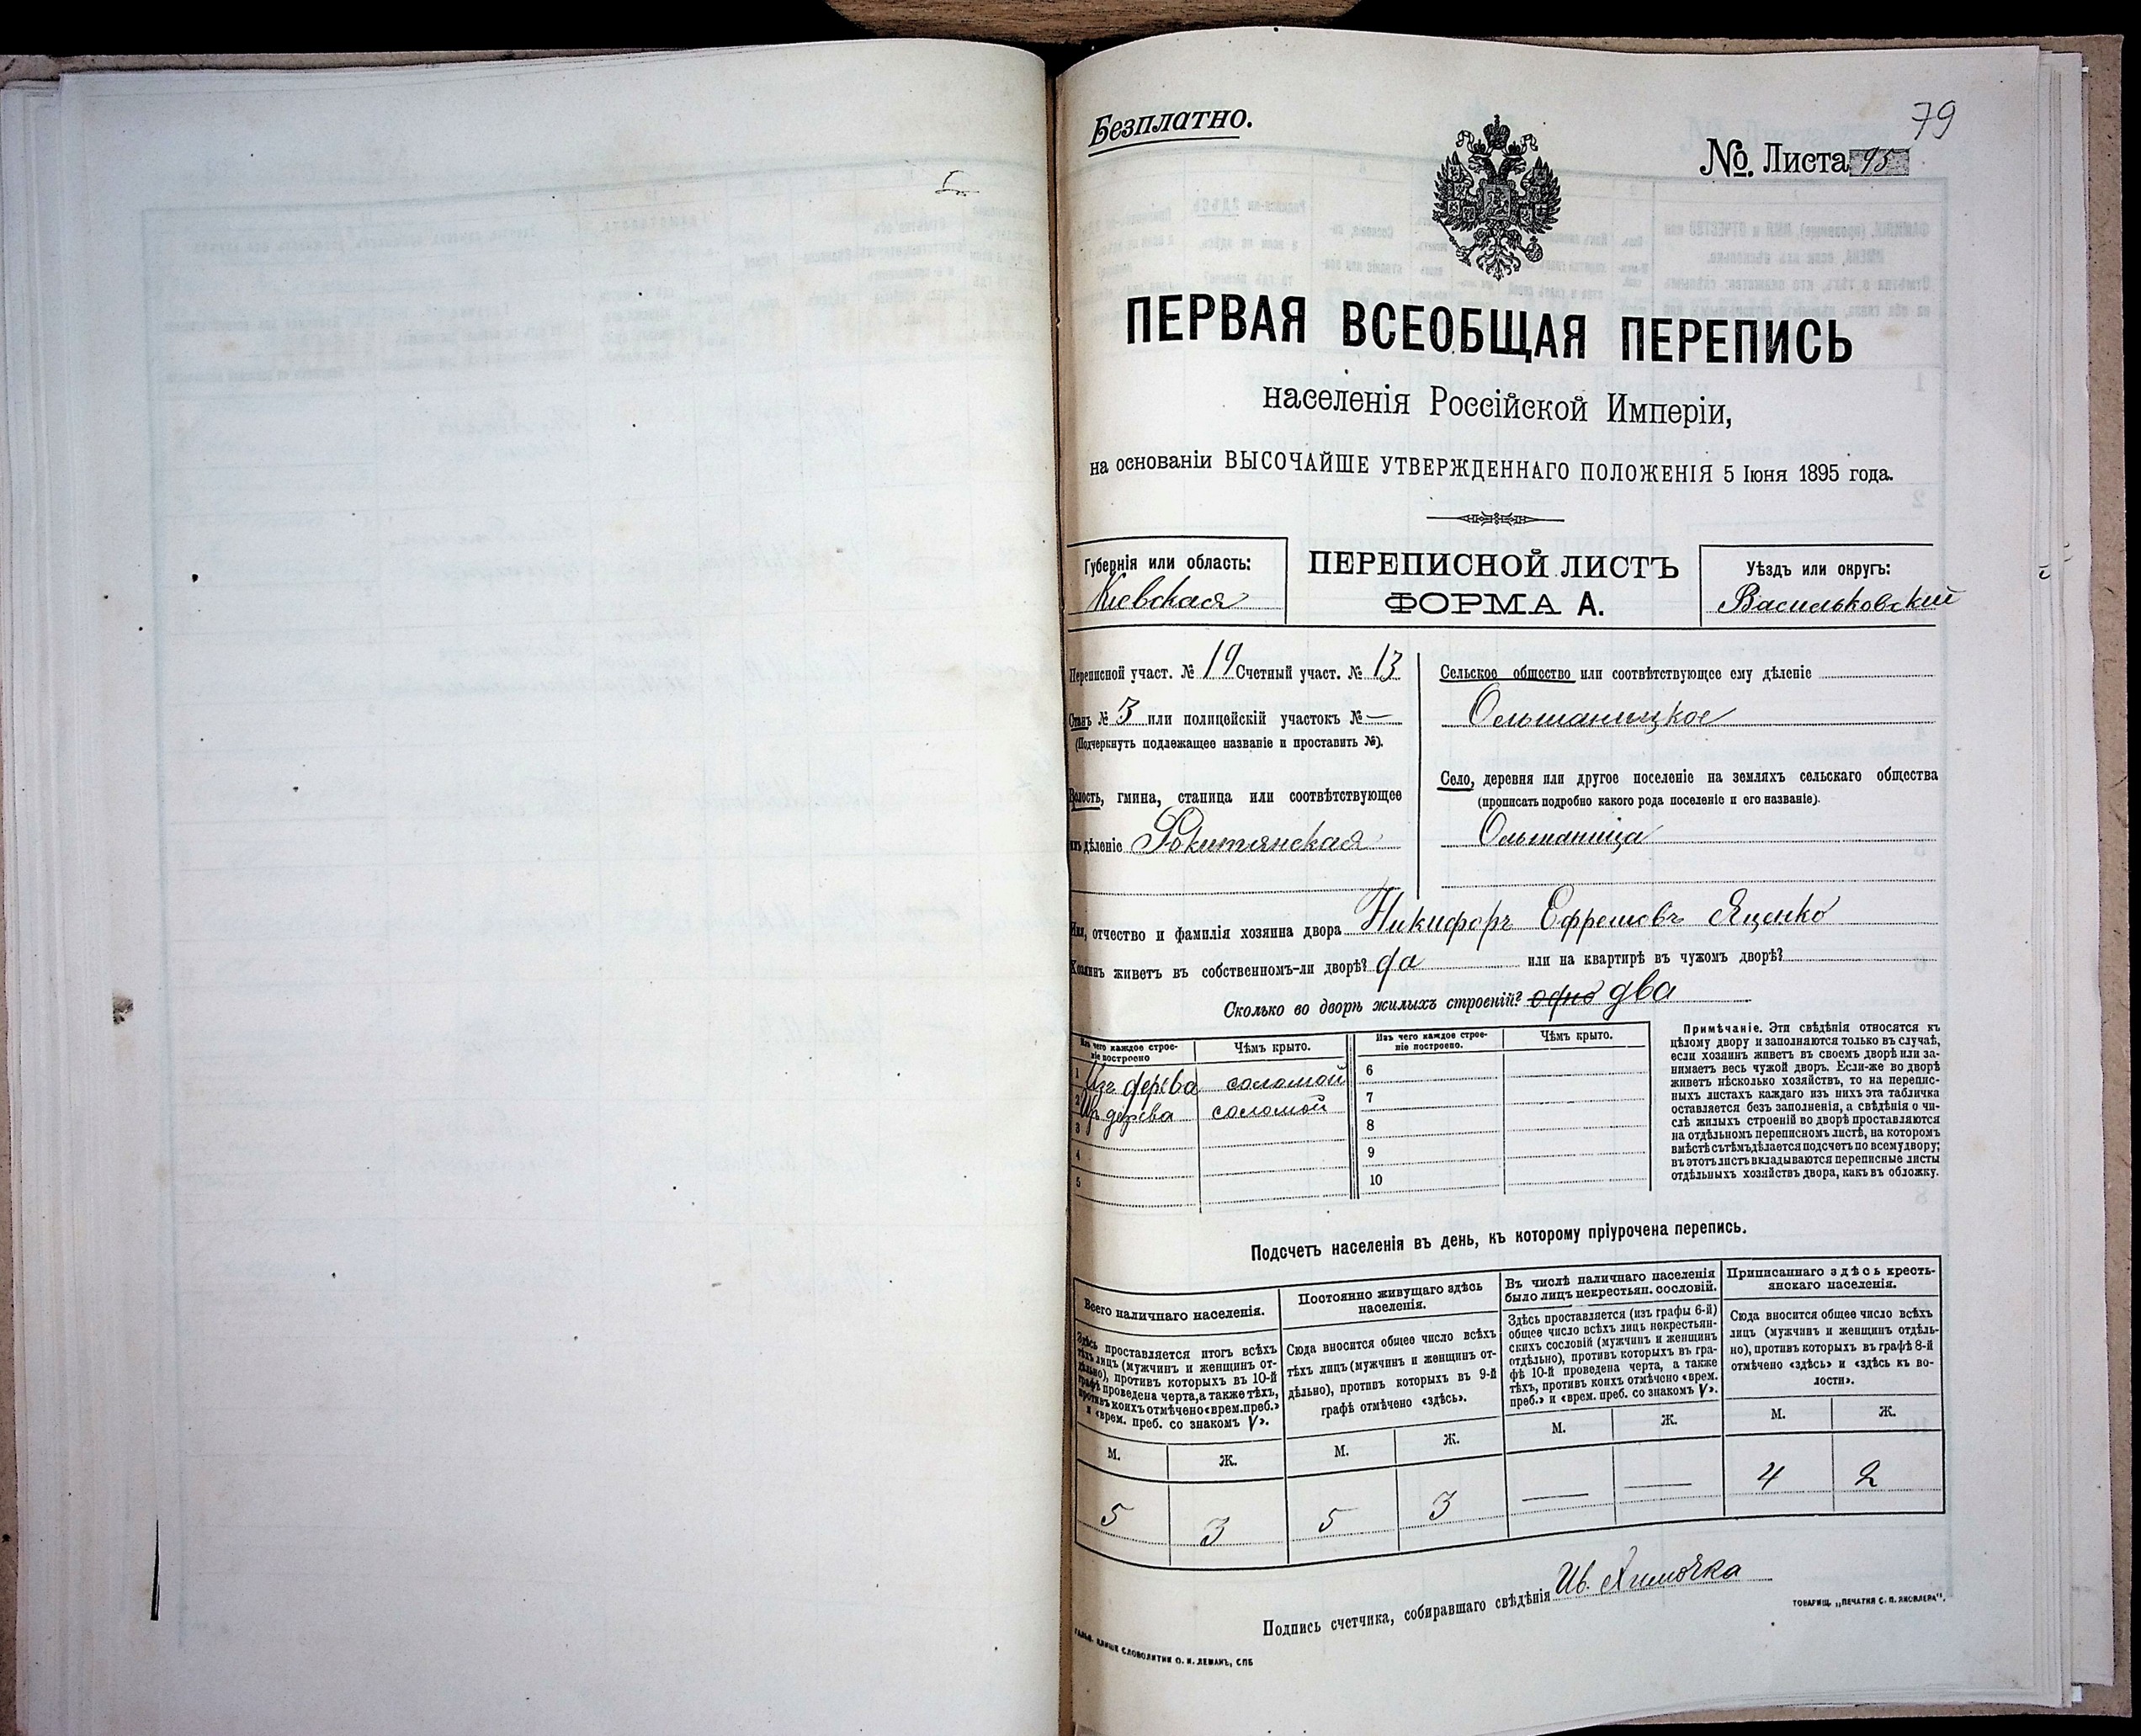 Безплатно.
79
№ Листа 95
ПЕРВАЯ ВСЕОБЩАЯ ПЕРЕПИСЬ
населенія Россійской Имперіи,
на основаніи ВЫСОЧАЙШЕ УТВЕРЖДЕННАГО ПОЛОЖЕНІЯ 5 Іюня 1895 года.
Губернія или область:
Кіевская
ПЕРЕПИСНОЙ ЛИСТЪ
ФОРМА А.
Уѣздъ или округъ:
Васильковскій
Переписной участ. № 19 Счетный участ. № 13
Станъ № 3 или полицейскій участокъ № —
(Подчеркнуть подлежащее названіе и проставить №).
Волость, гмина, станица или соотвѣтствующее
имъ дѣленіе Рокитянская
Сельское общество или соотвѣтствующее ему дѣленіе
Ольшаницкое
Село, деревня или другое поселеніе на земляхъ сельскаго общества
(прописать подробно какого рода поселеніе и его названіе).
Ольшаница
Имя, отчество и фамилія хозяина двора Никифоръ Ефремовъ Яценко
Хозяинъ живетъ въ собственномъ-ли дворѣ? да или на квартирѣ въ чужомъ дворѣ?
Сколько во дворѣ жилыхъ строеній? одно два
Изъ чего каждое строе-
ніе построено
Чѣмъ крыто.
Изъ чего каждое строе-
ніе построено.
Чѣмъ крыто.
1 Изъ дерева соломой 6
2 Изъ дерева соломой 7
3 8
4 9
5 10
Примѣчаніе. Эти свѣдѣнія относятся къ
цѣлому двору и заполняются только въ случаѣ,
если хозяинъ живетъ въ своемъ дворѣ или за-
нимаетъ весь чужой дворъ. Если-же во дворѣ
живетъ нѣсколько хозяйствъ, то на перепис-
ныхъ листахъ каждаго изъ нихъ эта табличка
оставляется безъ заполненія, а свѣдѣнія о чи-
слѣ жилыхъ строеній во дворѣ проставляются
на отдѣльномъ переписномъ листѣ, на которомъ
вмѣстѣ съ тѣмъ дѣлается подсчетъ по всему двору;
въ этотъ листъ вкладываются переписные листы
отдѣльныхъ хозяйствъ двора, какъ въ обложку.
Подсчетъ населенія въ день, къ которому пріурочена перепись.
Всего наличнаго населенія.
Здѣсь проставляется итогъ всѣхъ
тѣхъ лицъ (мужчинъ и женщинъ от-
дѣльно), противъ которыхъ въ 10-й
графѣ проведена черта, а также тѣхъ,
противъ коихъ отмѣчено «врем. преб.»
и «врем. преб. со знакомъ V».
М. Ж.
5 3
Постоянно живущаго здѣсь
населенія.
Сюда вносится общее число всѣхъ
тѣхъ лицъ (мужчинъ и женщинъ от-
дѣльно), противъ которыхъ въ 9-й
графѣ отмѣчено «здѣсь».
М. Ж.
5 3
Въ числѣ наличнаго населенія
было лицъ некрестьян. сословій.
Здѣсь проставляется (изъ графы 6-й)
общее число всѣхъ лицъ некрестьян-
скихъ сословій (мужчинъ и женщинъ
отдѣльно), противъ которыхъ въ гра-
фѣ 10-й проведена черта, а также
тѣхъ, противъ коихъ отмѣчено «врем.
преб.» и «врем. преб. со знакомъ V».
М. Ж.
— —
Приписаннаго здѣсь кресть-
янскаго населенія.
Сюда вносится общее число всѣхъ
лицъ (мужчинъ и женщинъ отдѣль-
но), противъ которыхъ въ графѣ 8-й
отмѣчено «здѣсь» и «здѣсь къ во-
лости».
М. Ж.
4 2
Подпись счетчика, собиравшаго свѣдѣнія Ив.
ТОВАРИЩ. „ПЕЧАТНЯ С. П. ЯКОВЛЕВА".
СЛОВОЛИТНИ О. И. ЛЕМАНЪ, СПБ